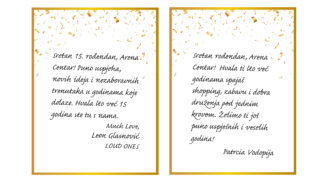 Sretan 15. rođendan, Arena
Centar! Puno uspjeha,
novih ideja i nezaboravnih
trenutaka u godinama koje
dolaze. Hvala što već 15
godina ste tu s nama.
Much Love,
Leon Glasnović
LOUD ONES
Sretan rođendan, Arena
Centar! Hvala ti što već
godinama spajaš
shopping, zabavu i dobra
druženja pod jednim
krovom. Želimo ti još
puno uspješnih i veselih
godina!
Patrcia Vodopija